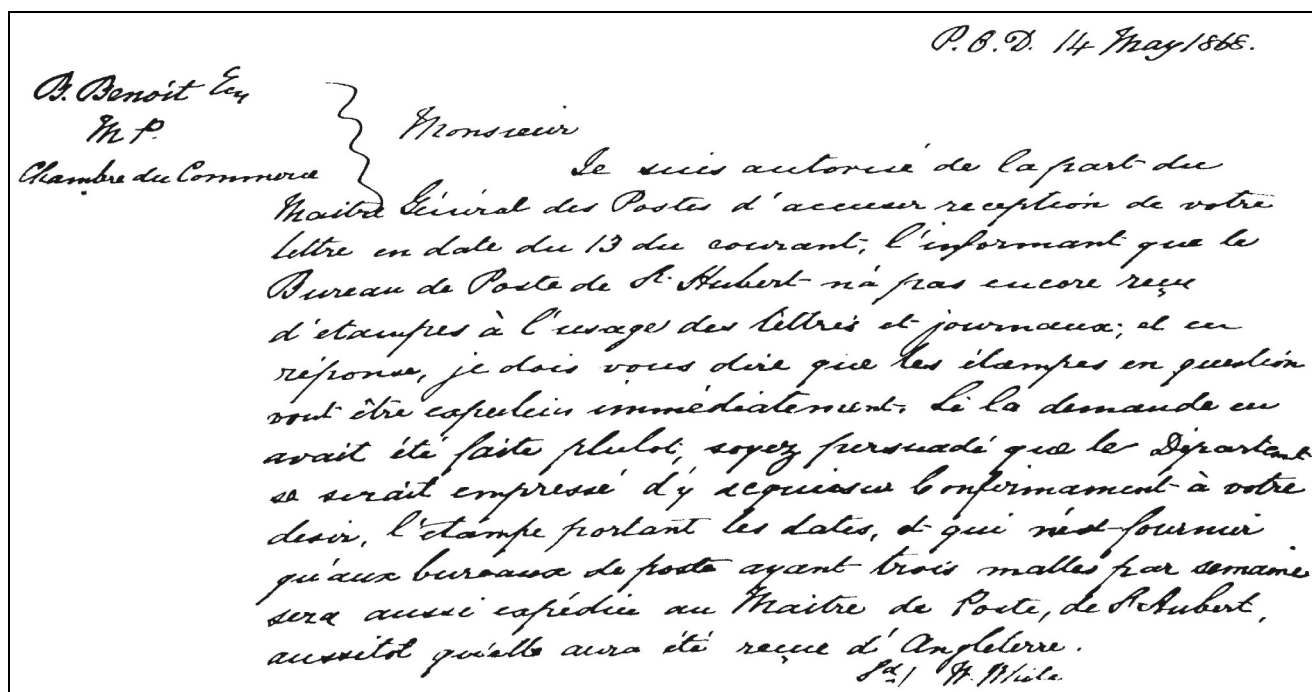 P.O.D. 14 May 1868.
B. Benoit Esq
M P.
Chambre du Commerce
Monsieur
Je suis autorisé de la part du
Maitre Général des Postes d'accuser reception de votre
lettre en date du 13 du courant, l'informant que le
Bureau de Poste de St. Hubert n'a pas encore reçu
d'etampes à l'usage des lettres et journaux; et en
réponse, je dois vous dire que les étampes en question
vont être expediées immédiatement. Si la demande en
avait été faite plutot, soyez persuadé que le Départemt
se serait empressé d'y acquiescer Confirmament à votre
desir, l'étampe portant les dates, et qui n'est fournier
qu'aux bureaux de poste ayant trois malles par semaine
sera aussi expédiée au Maitre de Poste, de St Hubert,
aussitot qu'elle aura été reçue d'Angleterre.
Sd/ W. White